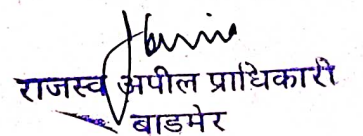 राजस्व अपील प्राधिकारी
बाडमेर